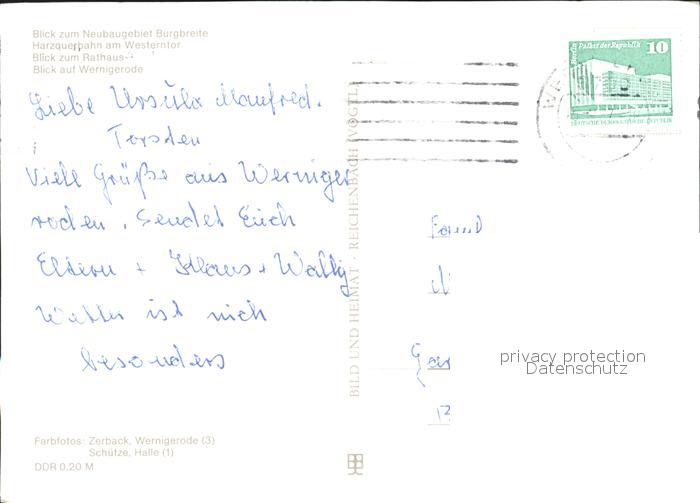 Blick zum Neubaugebiet Burgbreite
Harzquerbahn am Westerntor
Blick zum Rathaus
Blick auf Wernigerode
Liebe Ursula Manfred.
Torsten
Viele Grüße aus Werniger
roden. Sendet Euch
Eltern + Klaus + Wally
Wetter ist nich
besonders
Farbfotos: Zerback, Wernigerode (3)
Schütze, Halle (1)
DDR 0,20 M
BILD UND HEIMAT · REICHENBACH (VOGTL
Berlin Palast der Republik
10
DEUTSCHE DEMOKRATISCHE REPUBLIK
Fam
privacy protection
Datenschutz